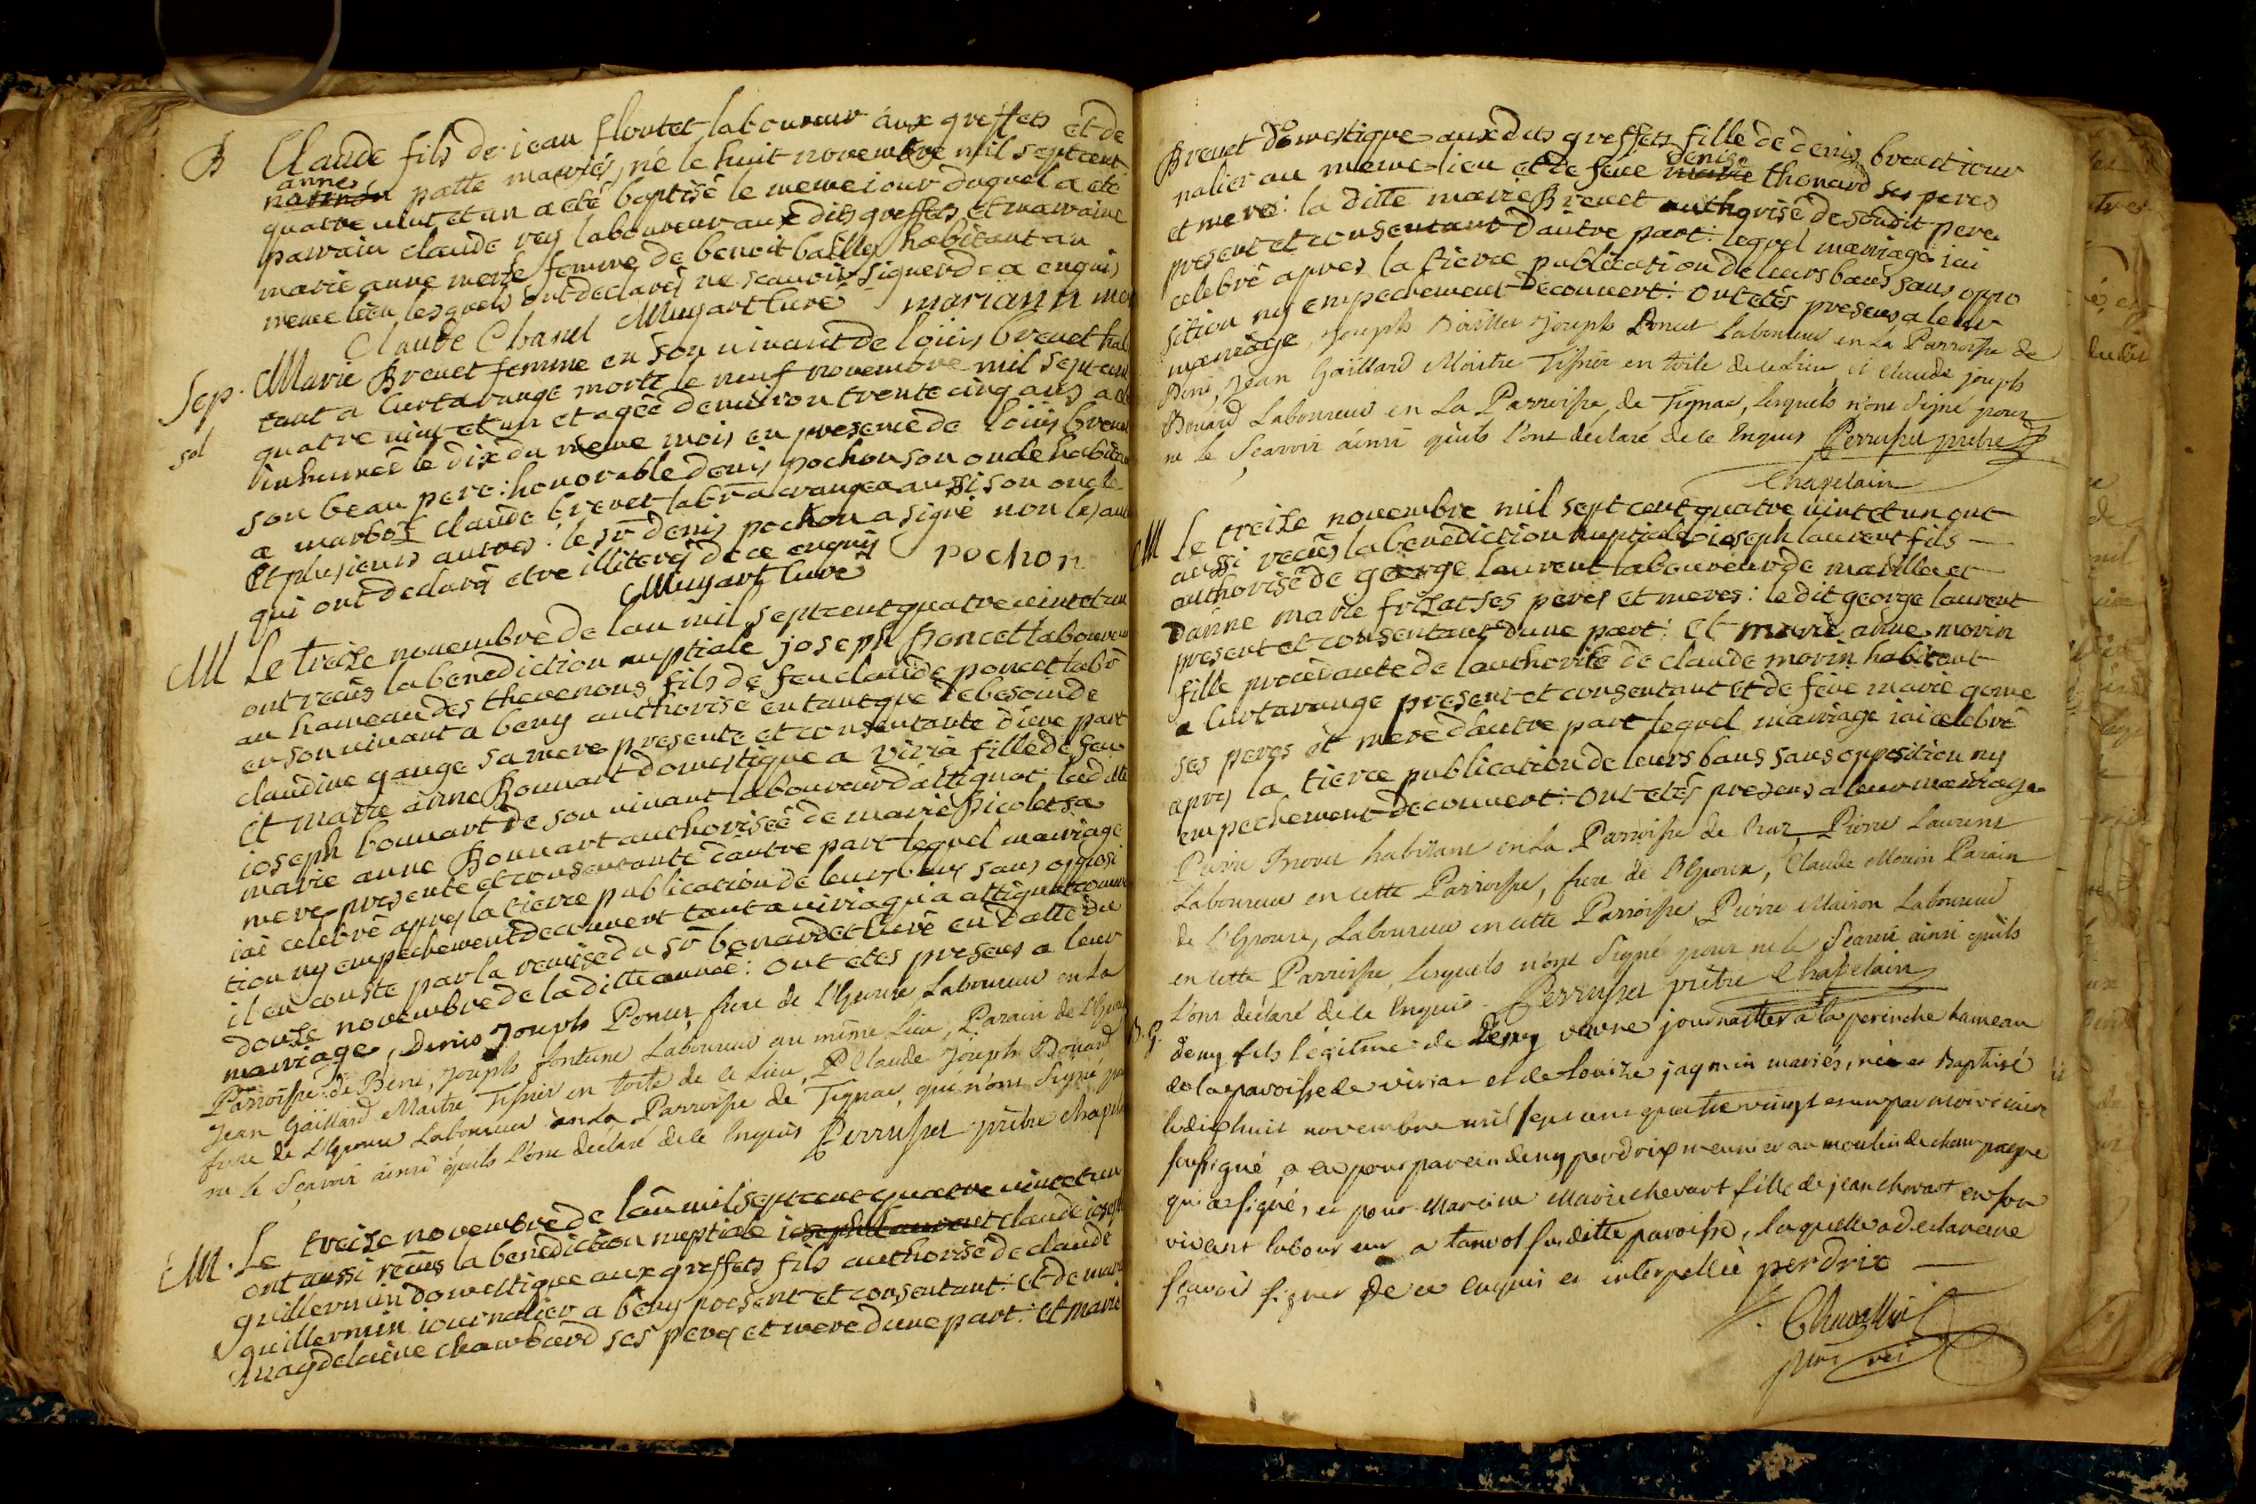 B Claude fils de jean floutet laboureur aux greffets et de
anne
nannon patte mariés, né le huit novembre mil septcent
quatre vint et un a eté baptisé le meme iour duquel a eté
parrain claude rey laboureur aux dits greffets et marraine
marie anne merle femme de benoit bailly habitant au
meme lieu lesquels ont declarés ne scauoir signer de ce enquis
Claude Chanel Mugart curé mariann mer
Sep. Marie Brevet femme en son vivant de loüis brevet hab
tant a Curtarange morte le neuf novembre mil sept cent
sol quatre vint et un et agée denviron trente cinq ans a eté
inhumée le dix du meme mois en presence de loüis brevet
son beau pere: honorable denis pochon son oncle habitant
a marboz claude brevet labr a crangeac aussi son oncle
et plusieurs autres: le sr denis pochon a signé non les aut
qui ont declarés etre illiterés de ce enquis
Mugart curé pochon
M Le treize novembre de lan mil septcent quatre vint et un
ont recüs la benediction nuptiale joseph poncet laboureur
au hameau des thevenons fils de feu claude poncet labr
en son vivant a beny authorisé en tant que de besoin de
claudine gauge sa mere presente et consentante d'une part
et marie anne Bonnart domestique a viria fille de feu
ioseph bonnart de son vivant laboureur d'attignat: la ditte
marie anne Bonnart authorisée de marie picolet sa
mere presente et consentante d'autre part lequel mariage
iai celebré apres la tierce publication de leurs bans sans opposi
tion ny empechement decouvert tant a viria qu'a attignat comme
il en conste par la remise du sr benardet curé en datte du
douze novembre de la ditte année: ont etés presens a leur
mariage, Denis Joseph Poncet, frere de l'Epoux Laboureur en La
Parroisse de Beni, Joseph fontaine Laboureur au même Lieu, Parain de l'Epou
Jean Gaillard Maitre Tissier en toile de ce Lieu, & Claude Joseph Bouard
frere de l'Epouse Laboureur en La Parroisse de Tignac, qui n'ont Signé pour
ne le Scavoir ainsi qu'ils l'ont declaré de ce Enquis Perrusset prêtre chapelai
M. Le treize novembre de lan mil septcent quatre vint et un
ont aussi recüs la benediction nuptiale ioseph laurent claude ioseph
guillermin domestique aux greffets fils authorisé de claude
guillermin iournalier a beny present et consentant: et de marie
magdelaine chambard ses peres et mere d'une part: et marie
Brevet domestique aux dits greffets fille de denis brevet iour
denise
nalier au meme lieu et de feüe marie thonard ses peres
et mere: la ditte marie Brevet authorisé de son dit pere
present et consentant d'autre part: lequel mariage iai
celebré apres la tierce publication de leurs bans sans oppo
sition ny empechement decouvert: ont etés presens a leur
mariage, Joseph Joseph Poncet Laboureur en La Parroisse de
Beni, Jean Gaillard Maitre Tissier en toile de ce Lieu et Claude joseph
Bouard Laboureur en La Parroisse de Tignac, lesquels n'ont Signé pour
ne le Scavoir ainsi qu'ils l'ont declaré de ce Enquis Perrusset prêtre
Chapelain
M Le treize novembre mil sept cent quatre vint et un ont
aussi recüs la benediction nuptiale ioseph laurent fils
authorisé de george laurent laboureur de et
d'anne marie frizat ses peres et meres: le dit george laurent
present et consentant d'une part: et marie anne morin
fille procedante de l'authorité de claude morin habitant
a Curtarange present et consentant et de feüe marie gome
ses peres et mere d'autre part lequel mariage iai celebré
apres la tierce publication de leurs bans sans opposition ny
empechement decouvert: ont etés presens a leur mariage
Pierre habitant en La Parroisse de Cruz, Pierre Laurent
Laboureur en cette Parroisse, frere de l'Epoux, Claude Morin Parain
de l'Epouse, Laboureur en cette Parroisse, Pierre Mairon Laboureur
en cette Parroisse, lesquels n'ont Signé pour ne le Scavoir ainsi qu'ils
l'ont declaré de ce Enquis Perrusset prêtre Chapelain
B. G. Deny fils légitime de Deny vavre journallier a la perinche hameau
de la paroisse de viriat et de louize jaqmin mariés, né et Baptisé
le dix huit novembre mil sept cent quatre vingt et un par moi vicaire
sousigné, a eu pour parein deny perdrix meunier au moulin de champagne
qui a signé, et pour Mareine Marie chevart fille de jean chevart en son
vivant laboureur a tanvol susditte paroisse, laquelle a declaré ne
scavoir signer de ce enquis et interpellée perdrix
Chevallier